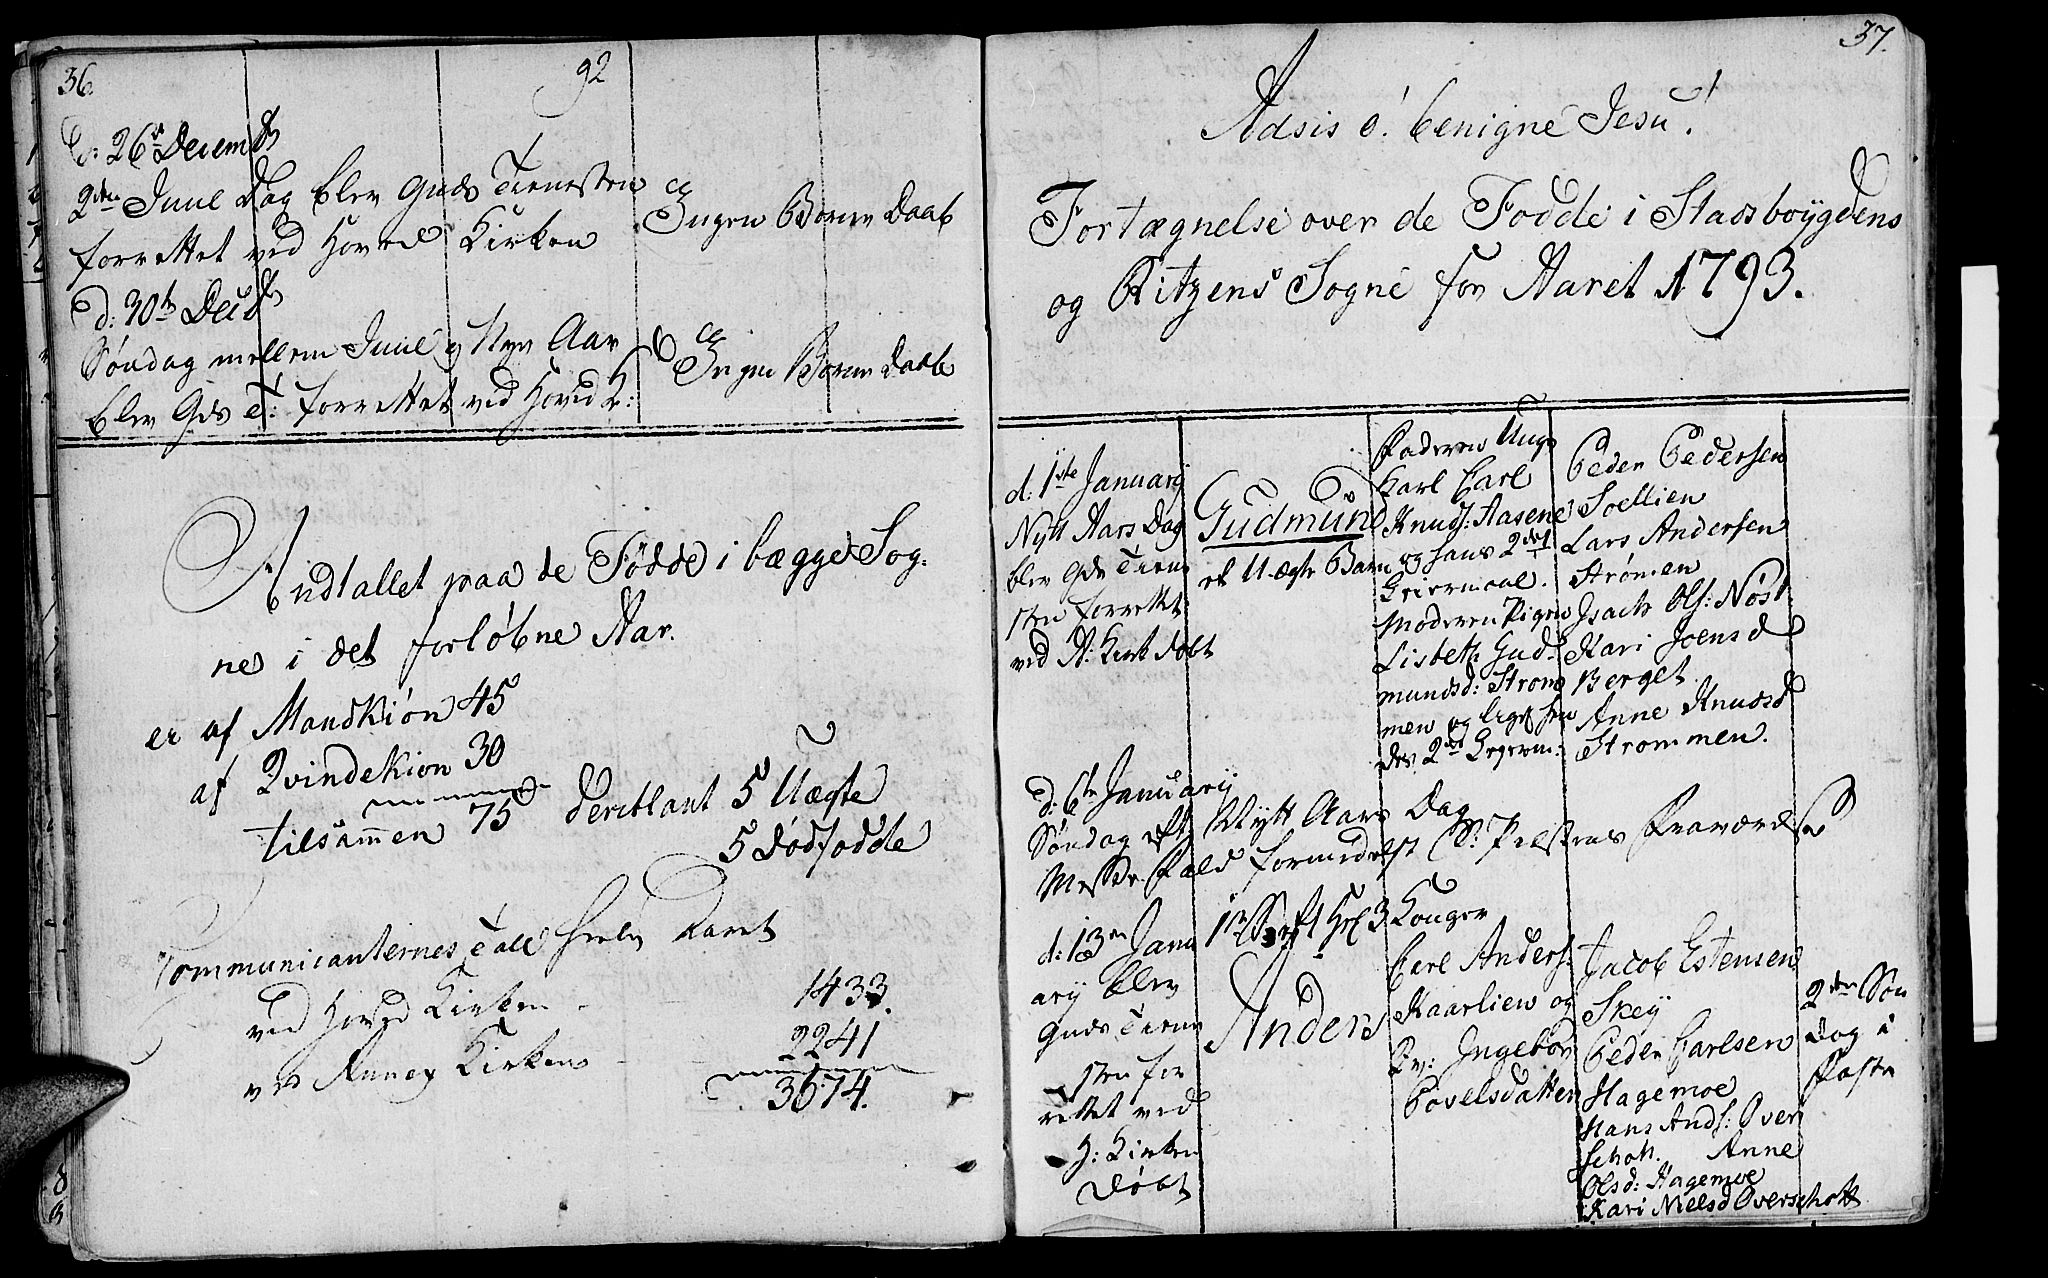 36.
92
d: 26de Decemb
2den Juul Dag blev Guds Tienesten
forrettet ved Hoved Kirken
Ingen Børn Daab
d: 30te Decb
Søndag mellem Juul og Nyv Aar
Ingen Børn Daab
blev Gds T: forrettet ved Hoved K:
Andtallet paa de Fødde i bægge Sog-
nes i det forløbne Aar.
er af Mandkiøn 45
af Qvindekion 30
tilsammen 75
deriblant 5 Uægte
5 dødfødde
Communicanternes Tall hele Aaret
ved Hoved Kirken - 1433.
ved Annex Kirken - 2241
3674.
37.
Adsis o! benigne Jesu!
Fortægnelse over de Fødde i Stadsboygdens
og Ritzens Sogne for Aaret 1793.
d: 1ste January
Nytt Aars Dag
blev Gds Tiene
sten forrettet
ved A: Kirk døbt
Gudmund
et Uægte Barn
Faderen Unge
Karl Carl
Knuds: Aasene
og hans 2det
Leiermaal.
Moderen Pigen
Lisbeth Gud-
mundsd: Strøm
men og ligesaa
des 2det Leierm:
Peder Pedersen
Soellien
Lars Andersen
Strømen
Isach Ols: Nøst
Kari Joensd
Berget
Anne Knudsd
Strommen.
d: 6te January
Søndag eft Nytt Aars Dag
Messe Fald formedelst S: Præstens Fraværelse
d: 13de Janu
ary blev
Guds Tiene
sten for
rettet ved
H: Kirken
døbt
1te S. eft Hel 3 Konger
Anders
Carl Anders:
Kaarlien og
Qv: Ingebor
Povelsdatter
Jacob Estensen
Skey
Peder Carlsen
Hagemoe
Hans Ands: Over
schot. Anne
Olsd: Hagemoe
Kari Nielsd Overschott
2den Søn
dag i
Faste